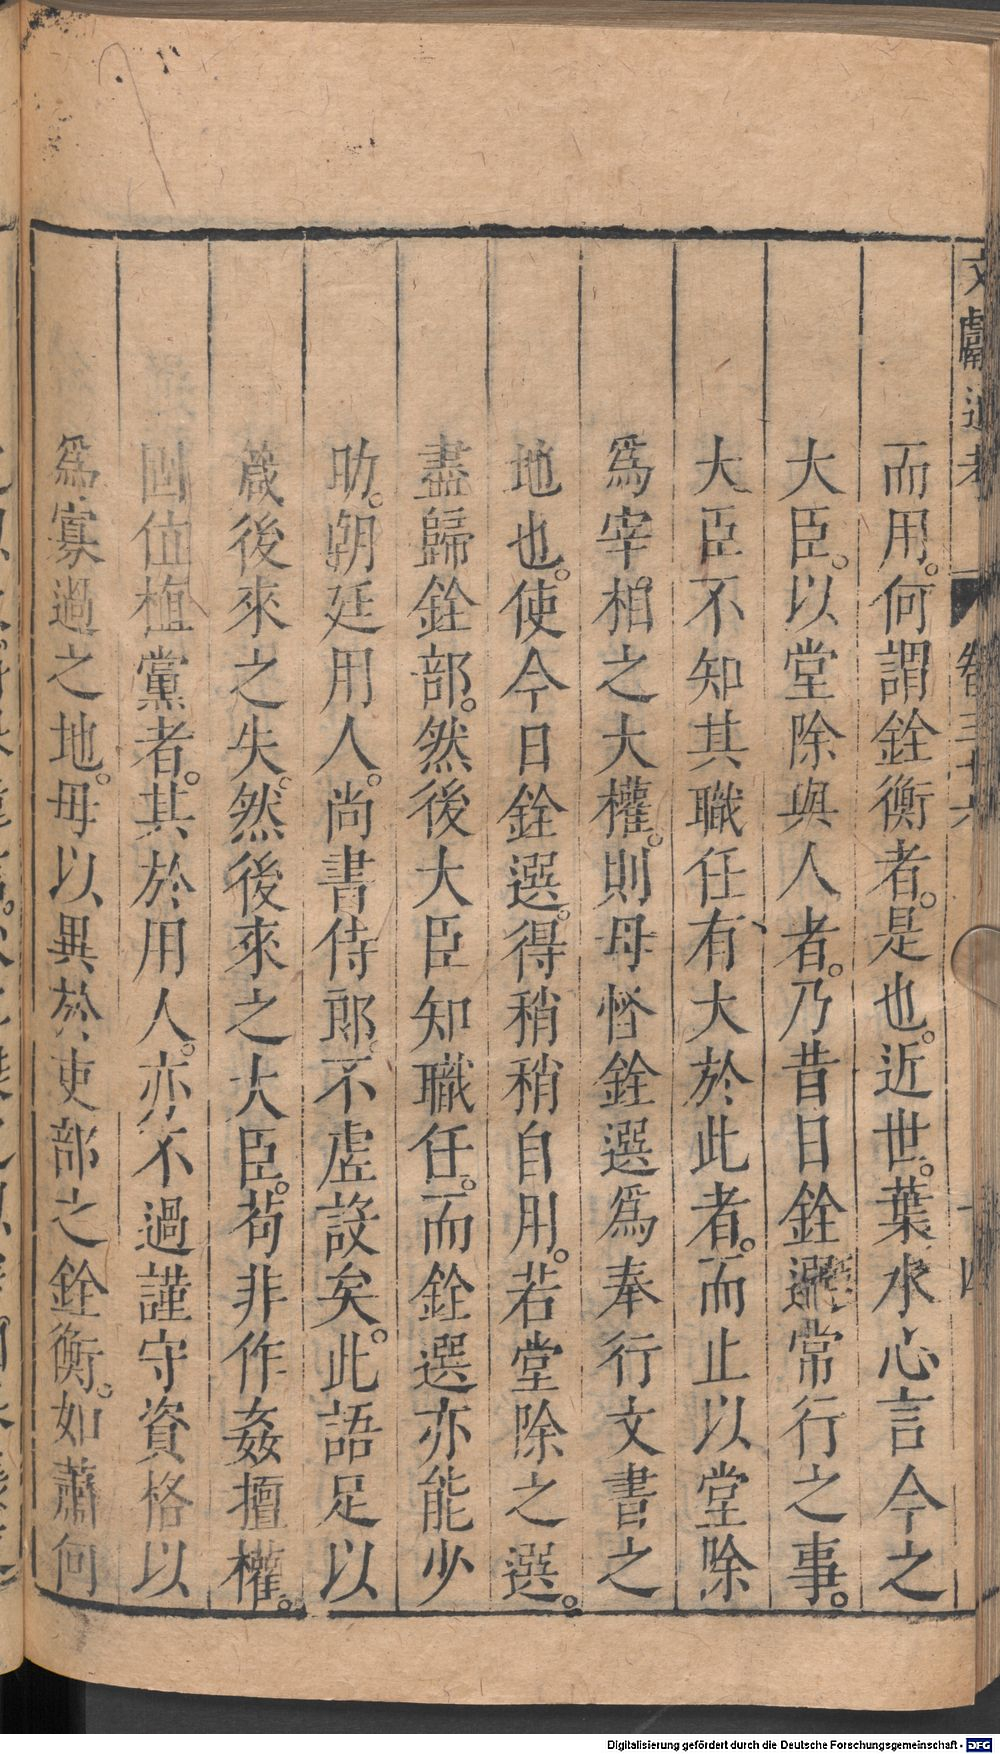 文獻通考　卷三十六　十四
而用。何謂銓衡者。是也。近世。葉水心言今之
大臣。以堂除與人者。乃昔日銓選常行之事。
大臣不知其職任有大於此者。而止以堂除
爲宰相之大權。則毋恠銓選爲奉行文書之
地也。使今日銓選。得稍稍自用。若堂除之選。
盡歸銓部。然後大臣知職任。而銓選亦能少
助。朝廷用人。尚書侍郎。不虛設矣。此語足以
箴後來之失。然後來之大臣。苟非作姦擅權。
固位植黨者。其於用人。亦不過謹守資格以
爲寡過之地。毋以異於吏部之銓衡。如蕭何
Digitalisierung gefördert durch die Deutsche Forschungsgemeinschaft - DFG